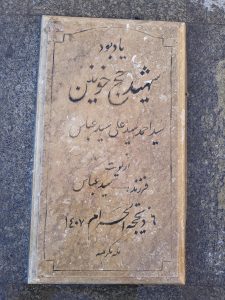 یادبود
شهید حج خونین
سید احمد سید علی سید عباس
از کویت
فرزند: سید عباس
۶ ذیحجة الحرام ۱۴۰۷
مکه مکرمه